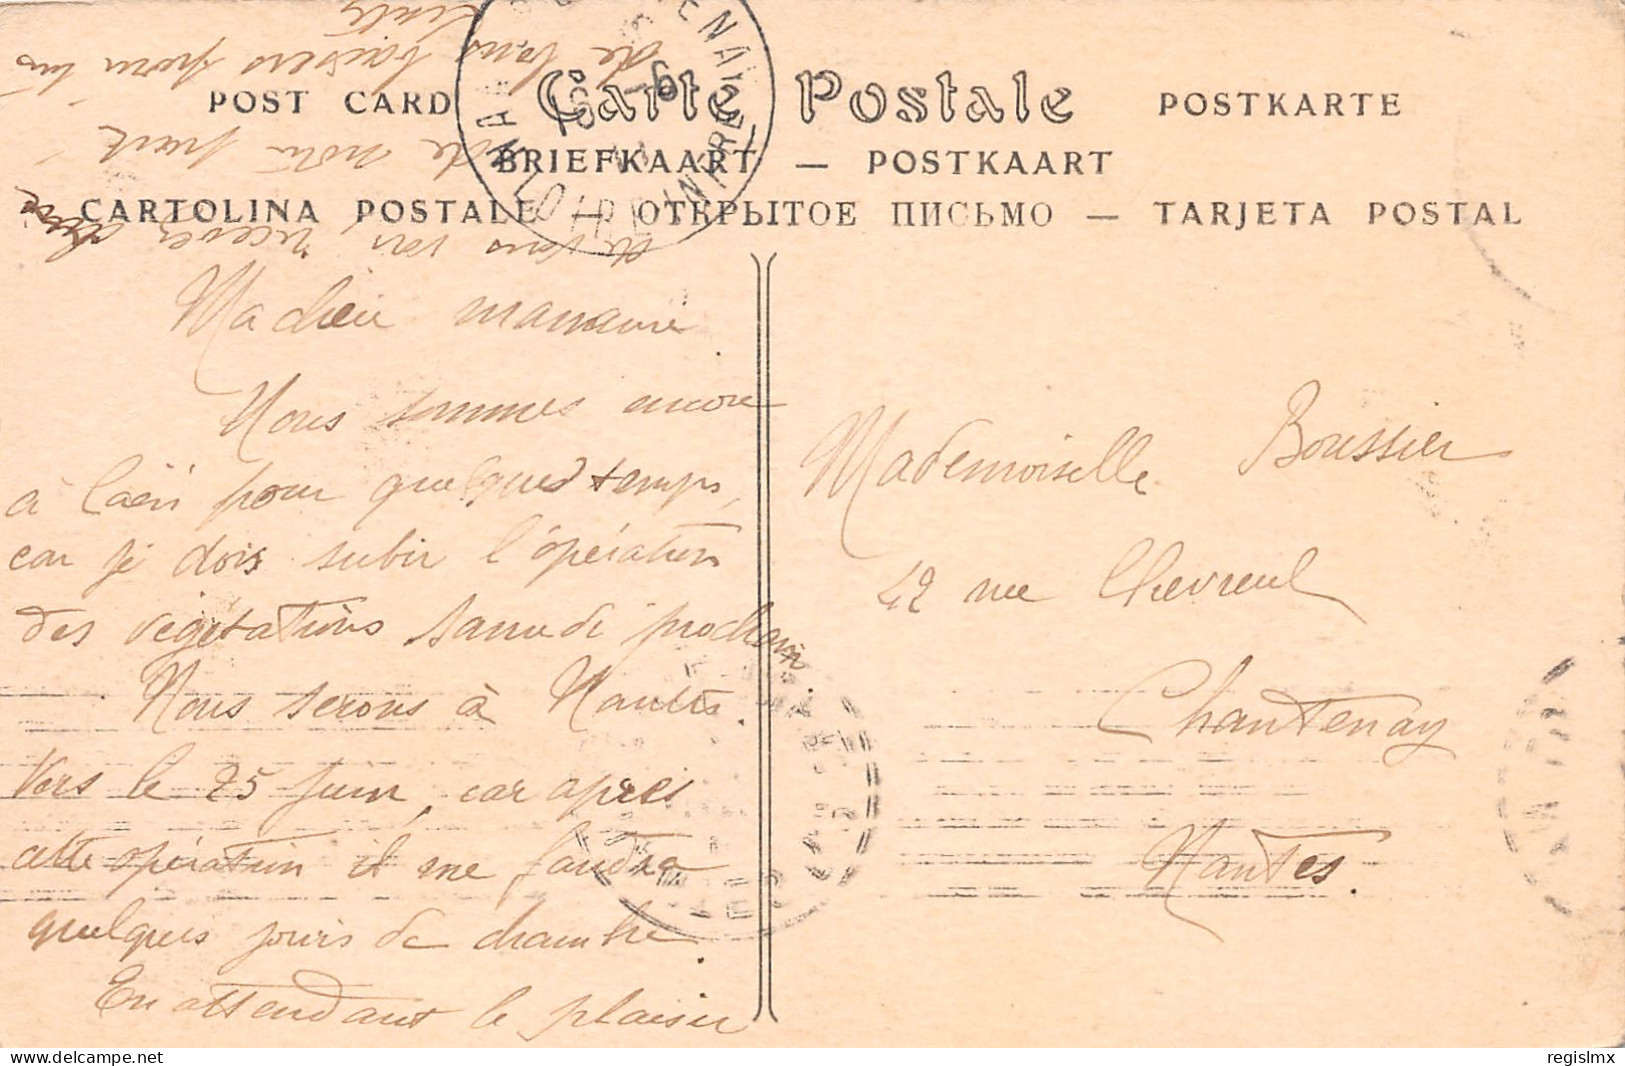 POST CARD Carte Postale POSTKARTE
BRIEFKAART — POSTKAART
CARTOLINA POSTALE — ОТКРЫТОЕ ПИСЬМО — TARJETA POSTAL
Ma chère marraine
Nous sommes encore
à Caën pour quelques temps,
car je dois subir l'opération
des végétations samedi prochain
Nous serons à Nantes.
Vers le 25 juin, car après
cette opération il me faudra
quelques jours de chambre.
En attendant le plaisir
de vous voir, recevez
de notre part
de bons baisers pour tous
Mademoiselle Boussier
42 rue Chevreul
Chantenay
Nantes.
LOIRE INFRE
regislmx